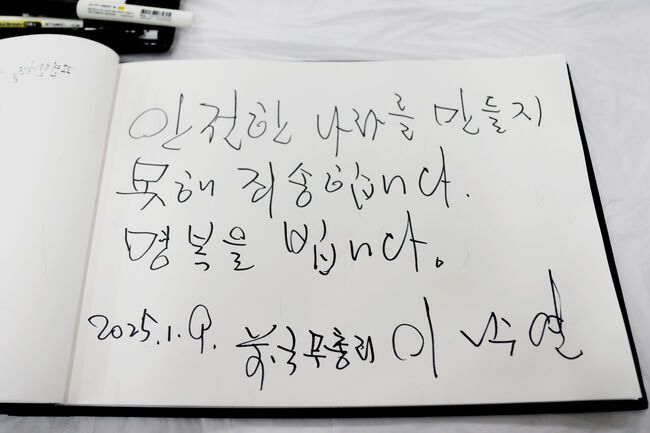 안전한 나라를 만들지
못해 죄송합니다.
명복을 빕니다.
2025.1.9. 前국무총리 이낙연